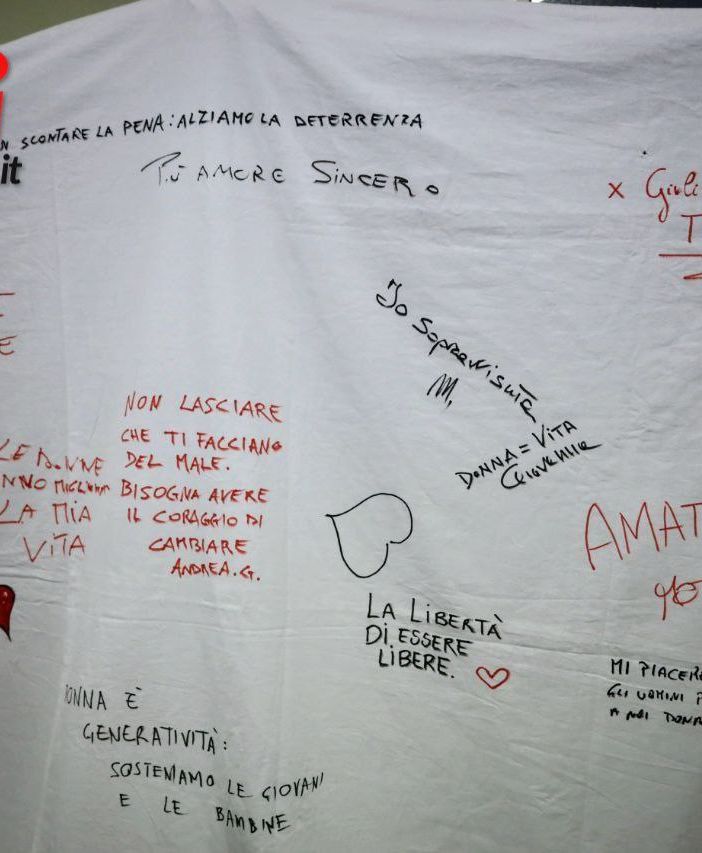 N SCONTARE LA PENA: ALZIAMO LA DETERRENZA
it
Più AMORE SINCERO
x Giuli
T
E
Io Sopravvissuta
M,
DONNA = VITA
Giovanna
NON LASCIARE
CHE TI FACCIANO
DEL MALE.
BISOGNA AVERE
IL CORAGGIO DI
CAMBIARE
ANDREA.G.
LE DONNE
NNO MIGLIORA
LA MIA
VITA
AMAT
LA LIBERTÀ
DI ESSERE
LIBERE.
MI PIACERE
GLI UOMINI P
A NOI DONN
DONNA È
GENERATIVITÀ:
SOSTENIAMO LE GIOVANI
E LE BAMBINE